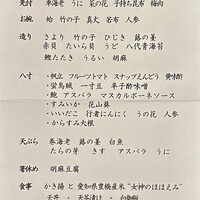 先付 車海老 うに 菜の花 子持ち昆布 梅肉
お椀 蛤 竹の子 真丈 若布 人参
造り さより 竹の子 ひじき 蕗の薹
赤貝 たいら貝 うど 八代青海苔
鯛 うるい
八寸 ・帆立 フルーツトマト スナップえんどう 黄味酢
・蛍烏賊 一寸豆 辛子酢味噌
・鮑 アスパラ マスカルポーネソース
・すみいか 花山葵
・いいだこ 行者にんにく うの花 人参
・からすみ大根
天ぷら 巻海老 蕗の薹 白魚
たらの芽 きす アスパラ うに
箸休め 胡麻豆腐
食事 かき揚 と 愛知県豊橋産米"女神のほほえみ"
天丼 ・ 天茶漬け ・ 白御飯